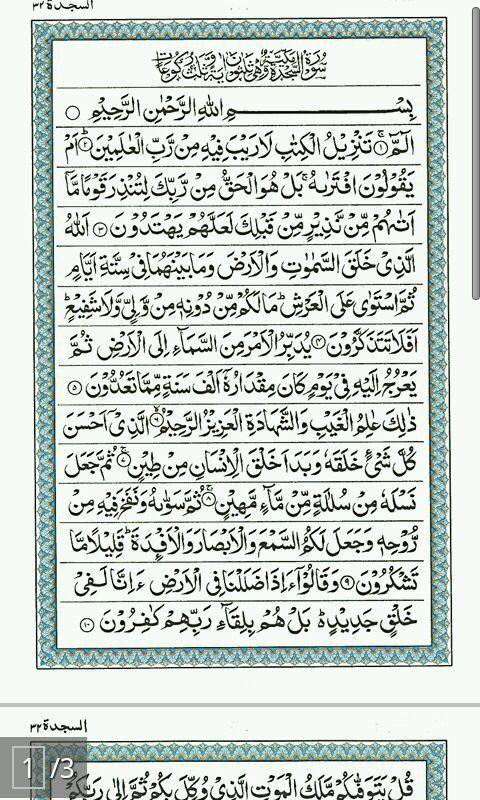 السجدة ٣٢
سُوْرَةُ السَّجْدَةِ مَكِّيَّةٌ وَّهِيَ ثَلٰثُوْنَ اٰيَةً وَّثَلٰثُ رُكُوْعَاتٍ
بِسْمِ اللهِ الرَّحْمٰنِ الرَّحِيْمِ
الٓمّٓ ۚ﴿١﴾ تَنْزِيْلُ الْكِتٰبِ لَا رَيْبَ فِيْهِ مِنْ رَّبِّ الْعٰلَمِيْنَ ؕ﴿٢﴾ اَمْ
يَقُوْلُوْنَ افْتَرٰىهُ ۚ بَلْ هُوَ الْحَقُّ مِنْ رَّبِّكَ لِتُنْذِرَ قَوْمًا مَّاۤ
اَتٰىهُمْ مِّنْ نَّذِيْرٍ مِّنْ قَبْلِكَ لَعَلَّهُمْ يَهْتَدُوْنَ ﴿٣﴾ اَللهُ
الَّذِيْ خَلَقَ السَّمٰوٰتِ وَالْاَرْضَ وَمَا بَيْنَهُمَا فِيْ سِتَّةِ اَيَّامٍ
ثُمَّ اسْتَوٰى عَلَى الْعَرْشِ ؕ مَا لَكُمْ مِّنْ دُوْنِهٖ مِنْ وَّلِيٍّ وَّلَا شَفِيْعٍ ؕ
اَفَلَا تَتَذَكَّرُوْنَ ﴿٤﴾ يُدَبِّرُ الْاَمْرَ مِنَ السَّمَآءِ اِلَى الْاَرْضِ ثُمَّ
يَعْرُجُ اِلَيْهِ فِيْ يَوْمٍ كَانَ مِقْدَارُهٗۤ اَلْفَ سَنَةٍ مِّمَّا تَعُدُّوْنَ ﴿٥﴾
ذٰلِكَ عٰلِمُ الْغَيْبِ وَالشَّهَادَةِ الْعَزِيْزُ الرَّحِيْمُ ۙ﴿٦﴾ الَّذِيْۤ اَحْسَنَ
كُلَّ شَيْءٍ خَلَقَهٗ وَبَدَاَ خَلْقَ الْاِنْسَانِ مِنْ طِيْنٍ ۚ﴿٧﴾ ثُمَّ جَعَلَ
نَسْلَهٗ مِنْ سُلٰلَةٍ مِّنْ مَّآءٍ مَّهِيْنٍ ۚ﴿٨﴾ ثُمَّ سَوّٰىهُ وَنَفَخَ فِيْهِ مِنْ
رُّوْحِهٖ وَجَعَلَ لَكُمُ السَّمْعَ وَالْاَبْصَارَ وَالْاَفْـِٕدَةَ ؕ قَلِيْلًا مَّا
تَشْكُرُوْنَ ﴿٩﴾ وَقَالُوْۤا ءَاِذَا ضَلَلْنَا فِي الْاَرْضِ ءَاِنَّا لَفِيْ
خَلْقٍ جَدِيْدٍ ؕ۬ بَلْ هُمْ بِلِقَآءِ رَبِّهِمْ كٰفِرُوْنَ ﴿١٠﴾
السجدة ٣٢
1/3
قُلْ يَتَوَفّٰىكُمْ مَّلَكُ الْمَوْتِ الَّذِيْ وُكِّلَ بِكُمْ ثُمَّ اِلٰى رَبِّكُمْ